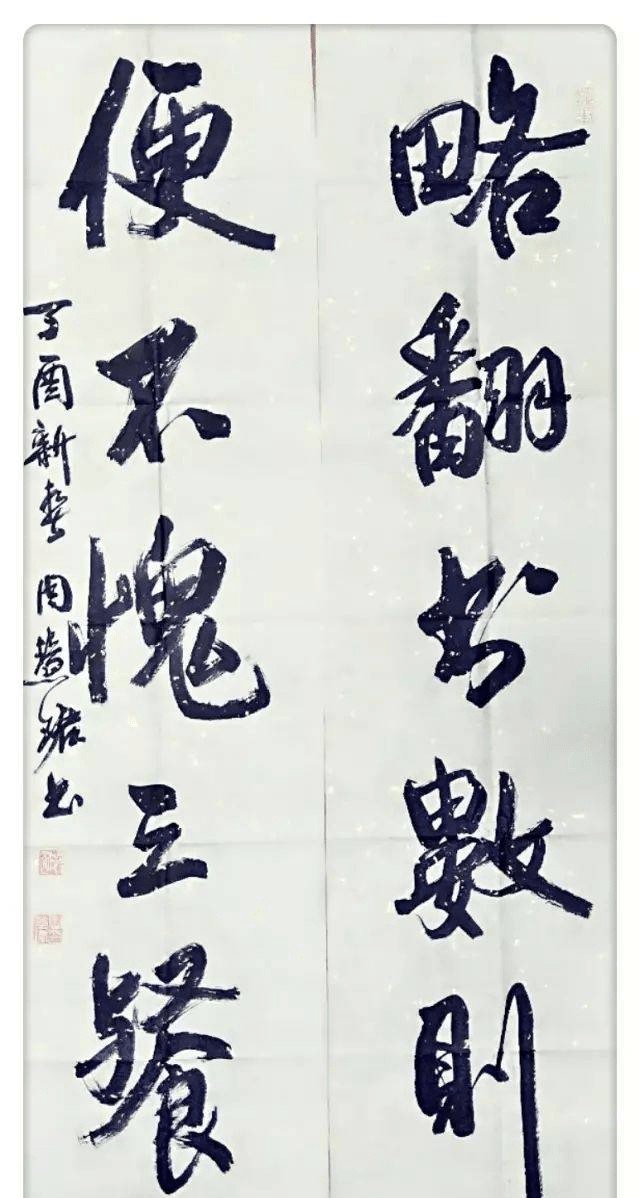 略翻书數則
便不愧三餐
丁酉新春 周慧珺书